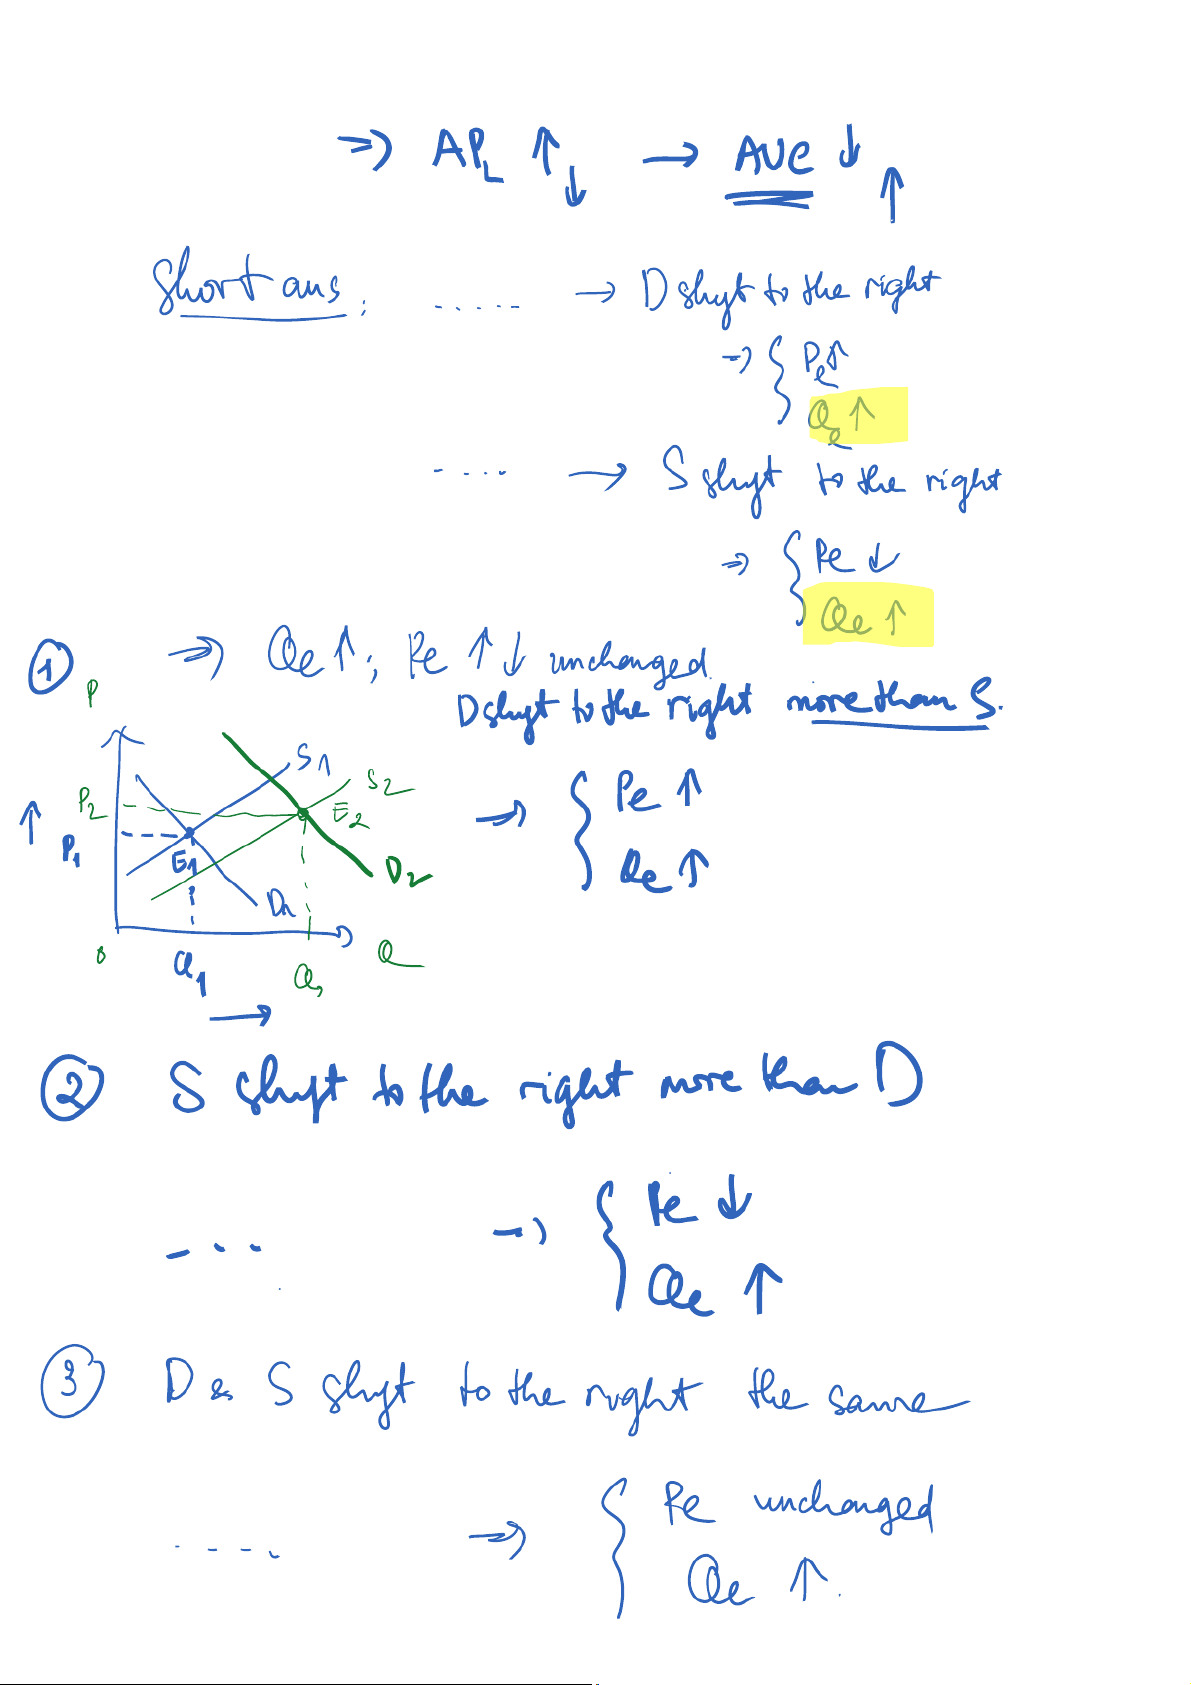 => APL ↑ ↓ → AVC ↓ ↑
Short ans: ..... → D shift to the right
=> { Pe ↑
Qe ↑
.... → S shift to the right
=> { Pe ↓
Qe ↑
① => Qe ↑; Pe ↑ ↓ unchanged.
D shift to the right more than S.
P
S1
S2
P2
E2
↑ P1
E1
D2
D1
=> { Pe ↑
Qe ↑
0
Q
Q1
Q2
→
② S shift to the right more than D
... => { Pe ↓
Qe ↑
③ D & S shift to the right the same
.... => { Pe unchanged
Qe ↑.